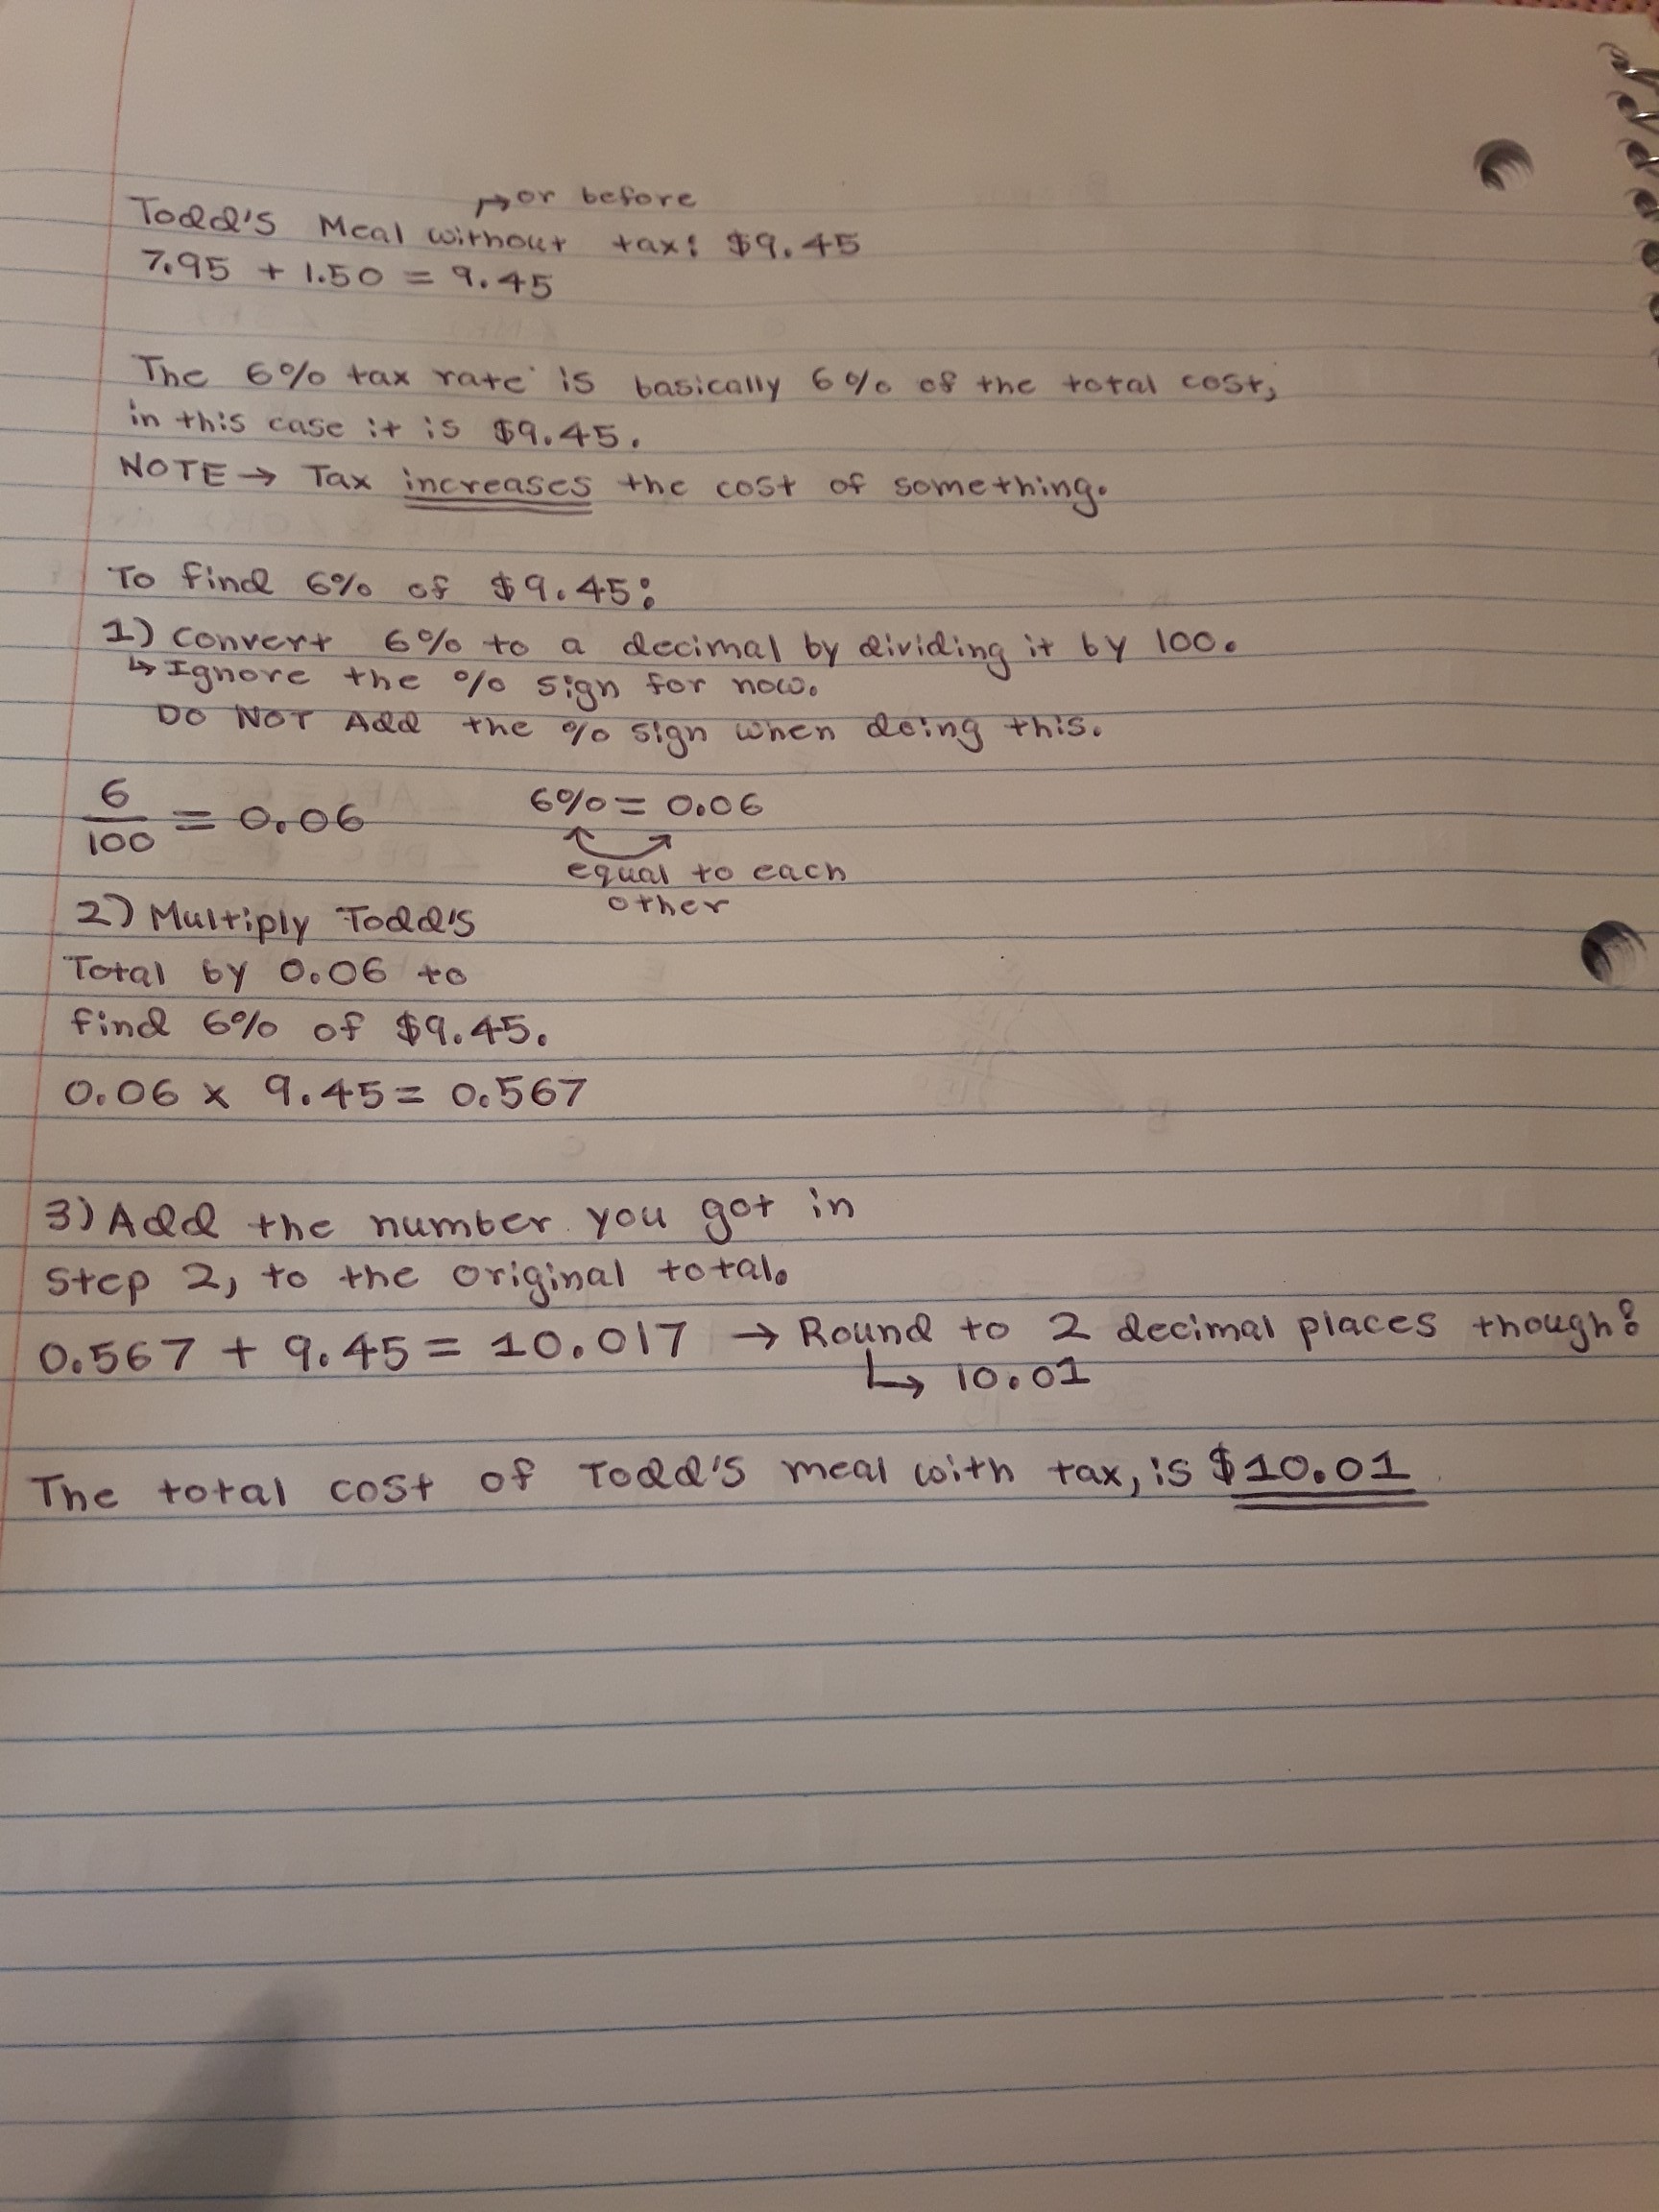 ↱ or before
Todd's Meal without tax: $9.45
7.95 + 1.50 = 9.45
The 6% tax rate is basically 6% of the total cost,
in this case it is $9.45.
NOTE → Tax increases the cost of something.
To find 6% of $9.45:
1) Convert 6% to a decimal by dividing it by 100.
↳ Ignore the % sign for now.
DO NOT Add the % sign when doing this.
6/100 = 0.06
6% = 0.06
equal to each
other
2) Multiply Todd's
Total by 0.06 to
find 6% of $9.45.
0.06 x 9.45 = 0.567
3) Add the number you got in
Step 2, to the original total.
0.567 + 9.45 = 10.017 → Round to 2 decimal places though:
↳ 10.01
The total cost of Todd's meal with tax, is $10.01